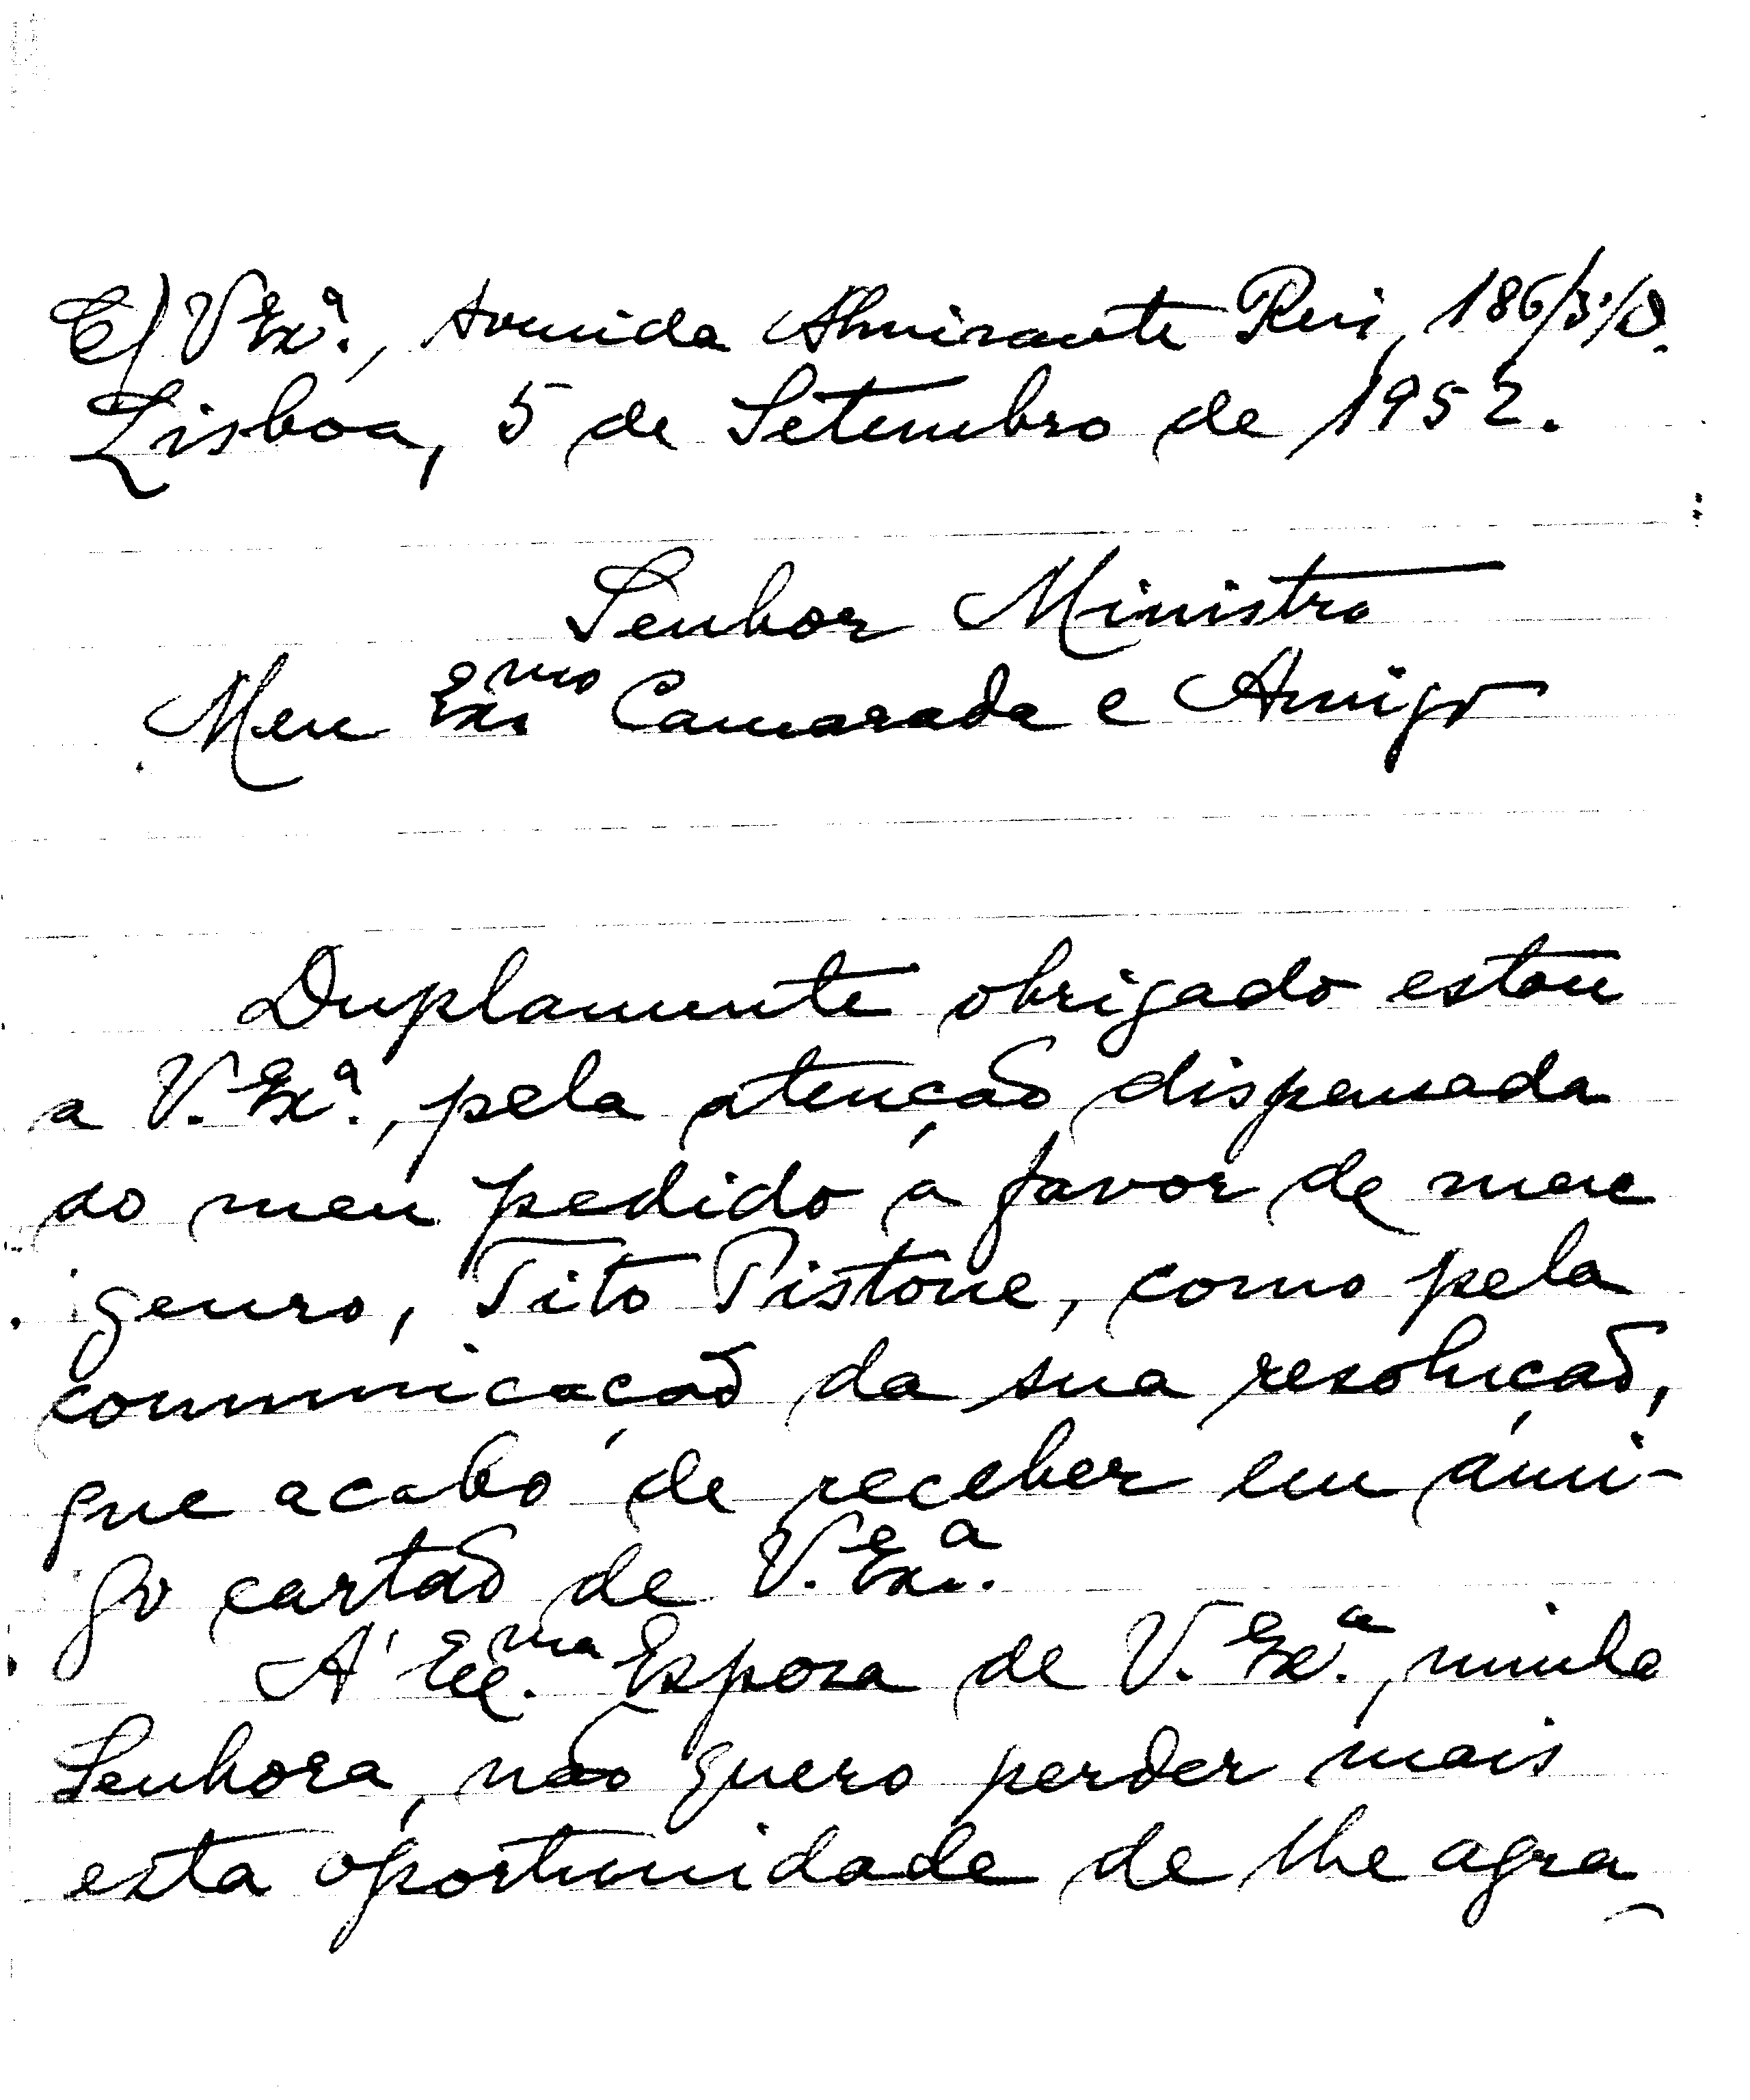 C/ V. Exª., Avenida Almirante Reis, 186/3º/D.
Lisboa, 5 de Setembro de 1952.
Senhor Ministro
Meu Exmo Camarada e Amigo
Duplamente obrigado estou
a V. Exª., pela atenção dispensada
ao meu pedido a favor de meu
genro, Tito Pistone, como pela
comunicação da sua resolução,
que acabo de receber em ami-
go cartão de V. Exª.
A' Exma. Esposa de V. Exª., minha
Senhora, não quero perder mais
esta oportunidade de lhe agra-